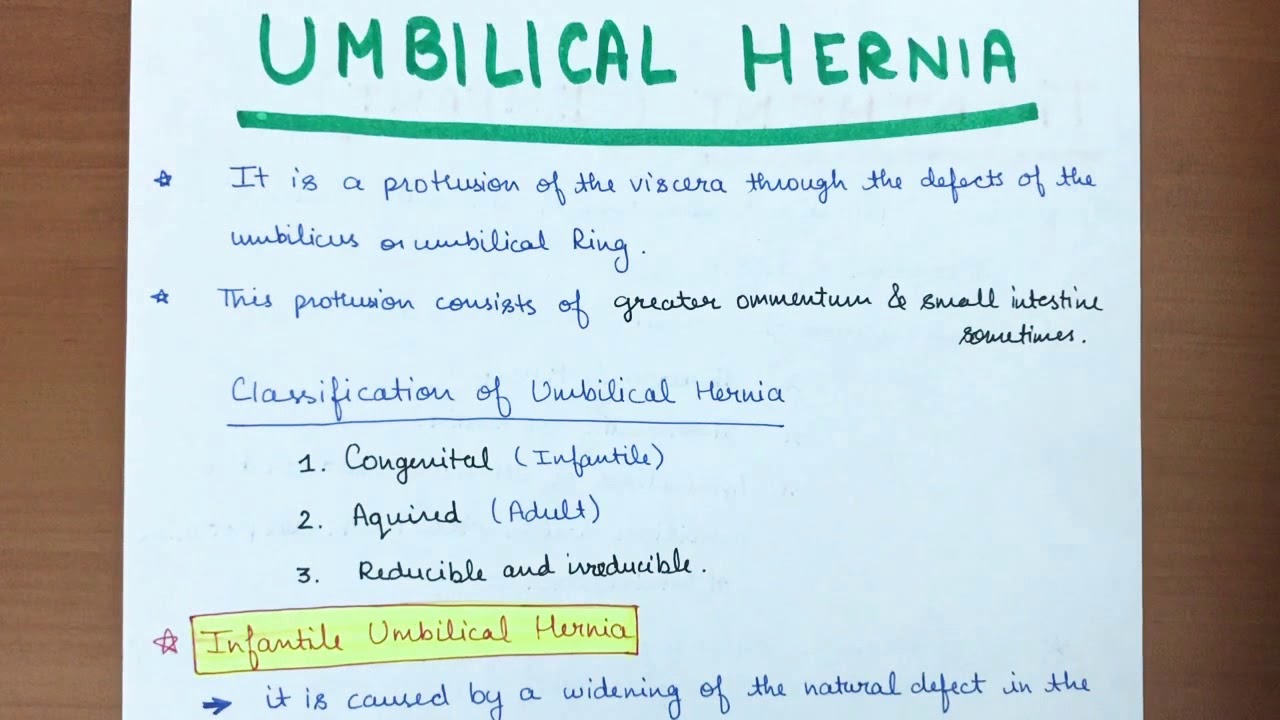 UMBILICAL HERNIA
It is a protrusion of the viscera through the defects of the
umbilicus or umbilical Ring.
This protrusion consists of greater ommentum & small intestine
sometimes.
Classification of Umbilical Hernia
1. Congenital (Infantile)
2. Aquired (Adult)
3. Reducible and irreducible.
Infantile Umbilical Hernia
→ it is caused by a widening of the natural defect in the